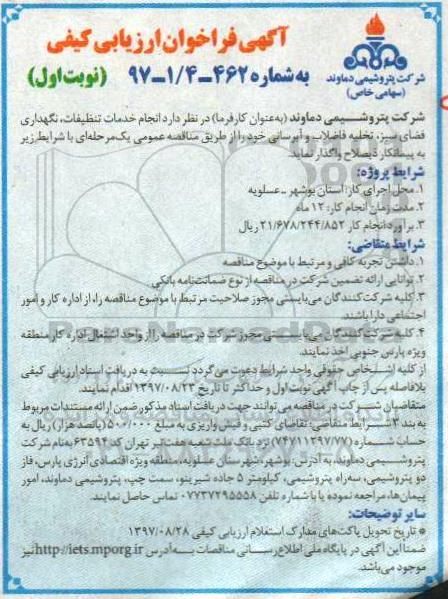 آگهی فراخوان ارزیابی کیفی
به شماره ۴۶۲-۱/۴-۹۷ (نوبت اول)
شرکت پتروشیمی دماوند
(سهامی خاص)
شرکت پتروشیمی دماوند (به‌عنوان کارفرما) در نظر دارد انجام خدمات تنظیفات، نگهداری
فضای سبز، تخلیه فاضلاب و آبرسانی خود را از طریق مناقصه عمومی یک‌مرحله‌ای با شرایط زیر
به پیمانکار ذیصلاح واگذار نماید.
شرایط پروژه:
۱. محل اجرای کار: استان بوشهر - عسلویه
۲. مدت زمان انجام کار: ۱۲ ماه
۳. برآورد انجام کار ۲۱/۶۷۸/۲۴۴/۸۵۲ ریال
شرایط متقاضی:
۱. داشتن تجربه کافی و مرتبط با موضوع مناقصه
۲. توانایی ارائه تضمین شرکت در مناقصه از نوع ضمانت‌نامه بانکی
۳. کلیه شرکت‌کنندگان می‌بایستی مجوز صلاحیت مرتبط با موضوع مناقصه را، از اداره کار و امور
اجتماعی دارا باشند.
۴. کلیه شرکت‌کنندگان می‌بایستی مجوز شرکت در مناقصه را از واحد اشتغال اداره کار منطقه
ویژه پارس جنوبی اخذ نمایند.
از کلیه اشخاص حقوقی واجد شرایط دعوت می‌گردد نسبت به دریافت اسناد ارزیابی کیفی
بلافاصله پس از چاپ آگهی نوبت اول و حداکثر تا تاریخ ۱۳۹۷/۰۸/۲۳ اقدام نمایند.
متقاضیان شرکت در مناقصه می‌توانند جهت دریافت اسناد مذکور ضمن ارائه مستندات مربوط
به بند ۳ شرایط متقاضی، تقاضای کتبی و فیش واریزی به مبلغ ۵۰۰/۰۰۰ (پانصد هزار) ریال به
حساب شماره (۷۴۷۱۱۲۹۷/۷۷) نزد بانک ملت شعبه هفت‌تیر تهران کد ۶۳۵۹۴ به‌نام شرکت
پتروشیمی دماوند، به آدرس: بوشهر، شهرستان عسلویه، منطقه ویژه اقتصادی انرژی پارس، فاز
دو پتروشیمی، سه‌راه پتروشیمی، کیلومتر ۵ جاده شیرینو، سمت چپ، پتروشیمی دماوند، امور
پیمان‌ها، مراجعه نموده یا با شماره تلفن ۰۷۷۳۷۲۹۵۵۵۸ تماس حاصل نمایند.
سایر توضیحات:
* تاریخ تحویل پاکت‌های مدارک استعلام ارزیابی کیفی ۱۳۹۷/۰۸/۲۸
ضمنا این آگهی در پایگاه ملی اطلاع‌رسانی مناقصات به آدرس http://iets.mporg.ir نیز
موجود می‌باشد.